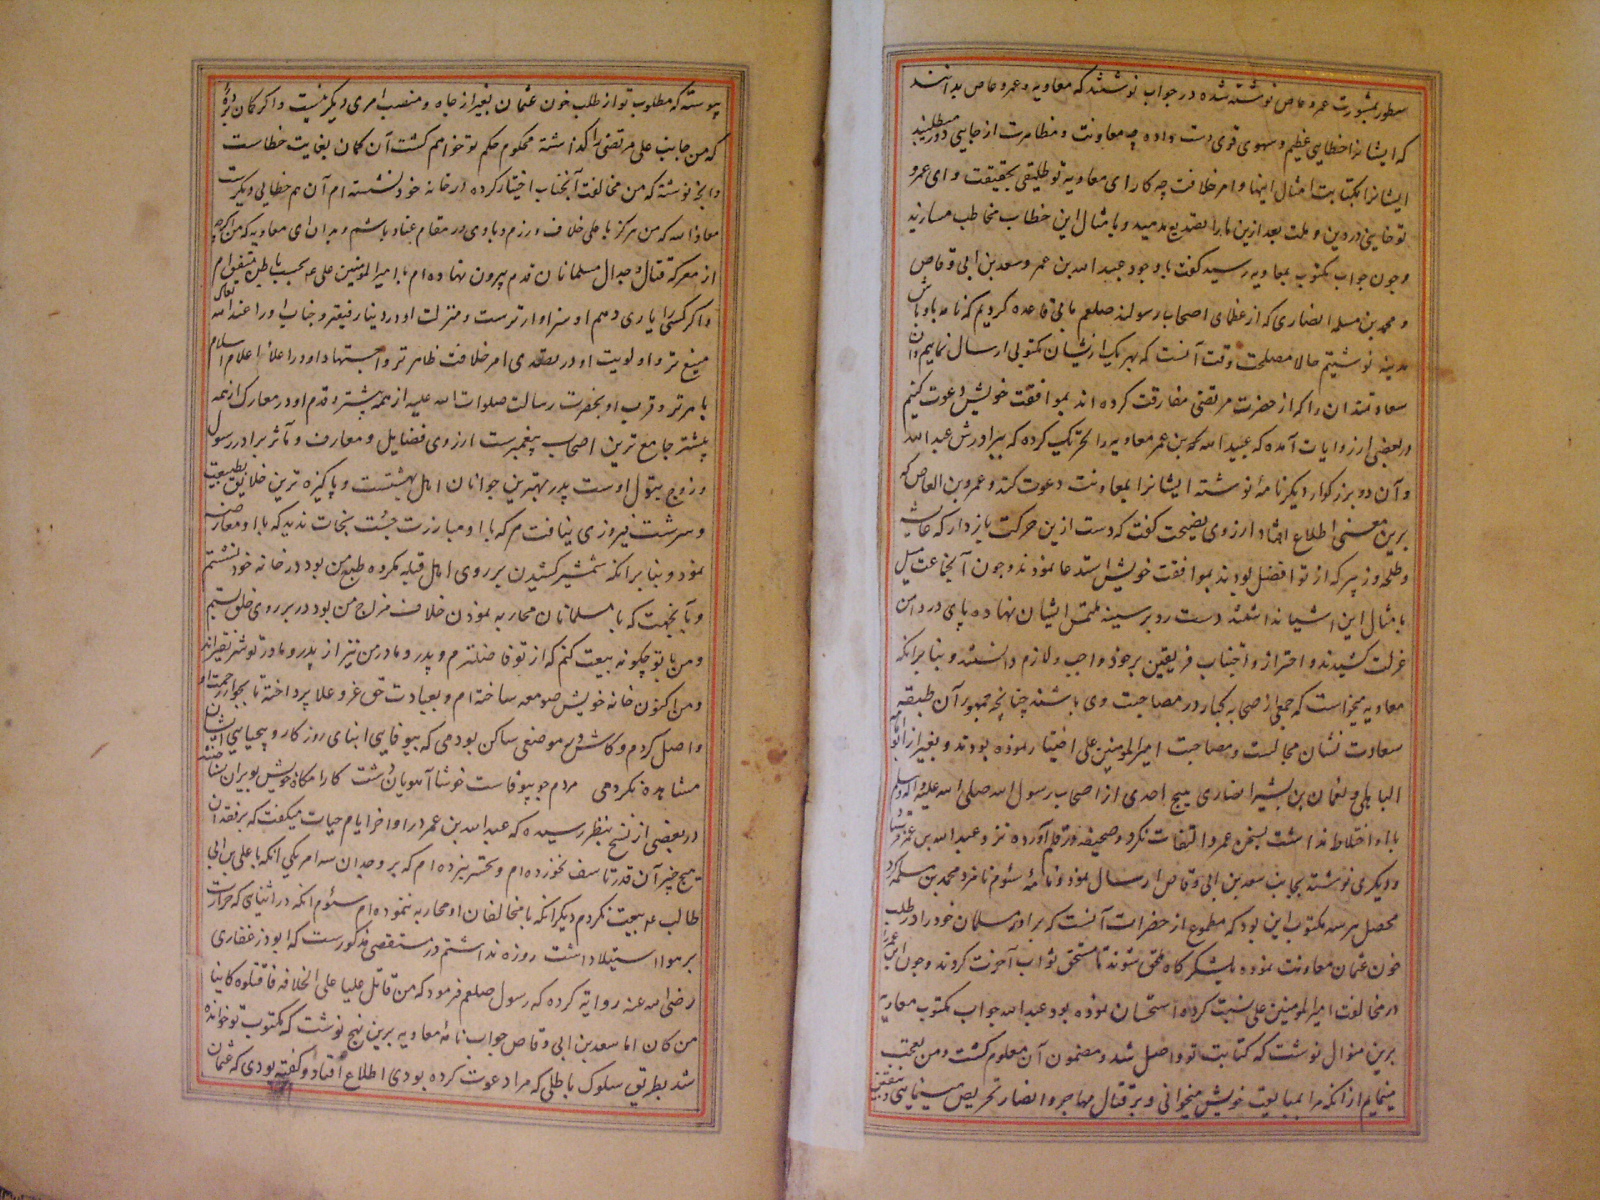 سطور بمشورت عمرو عاص نوشته شده در جواب نوشتند که معاویه و عمرو عاص بدانند
که ایشانرا خطایی عظیم و سهوی قوی دست داده چه معاونت و مظاهرت از جایی دور میطلبند
ایشانرا بکتابت امثال اینها و امر خلافت چه کار ای معاویه تو طلیقی بحقیقت و ای عمرو
تو خاینی در دین و ملت بعد ازین ما را تصدیع مدهید و بامثال این خطاب مخاطب مسازید
و چون جواب مکتوب بمعاویه رسید گفت با وجود عبد الله بن عمر و سعد بن ابی وقاص
و محمد بن مسلمه انصاری که از عظمای اصحاب رسولند صلعم ما بی قاعده کردیم که نامه باوباش
مدینه نوشتیم حالا مصلحت وقت آنست که بهر یک از ایشان مکتوبی ارسال نماییم و آن
سعادتمندان را که از حضرت مرتضی مفارقت کرده اند بموافقت خویش دعوت کنیم
در بعضی از روایات آمده که عبید الله بن عمر معاویه را تحریک کرده که ببرادرش عبد الله
و آن دو بزرکوار دیکر نامهٔ نوشته ایشانرا بمعاونت دعوت کند و عمرو بن العاص که
برین معنی اطلاع افتاد از روی نصیحت کفت که دست ازین حرکت باز دار که عایشه
و طلحه و زبیر که از تو افضل بودند بموافقت خویش استدعا نمودند و چون آنجماعت میل
بامثال این اشیا نداشتند دست رد بر سینه ملتمس ایشان نهاده پای در دامن
عزلت کشیدند و احتراز و اجتناب فریقین بر خود واجب و لازم دانستند و بنا بر آنکه
معاویه میخواست که جمعی از صحابه کبار در مصاحبت وی باشند چنانچه جمهور آن طبقه
سعادت نشان مجالست و مصاحبت امیر المومنین علی اختیار نموده بودند و بغیر از
الباهلی و نعمان بن بشیر انصاری هیچ احدی از اصحاب رسول الله صلی الله علیه و اله و سلم
با او اختلاط نداشت بسخن عمرو التفات نکرد و صحیفه در قلم آورده نزد عبد الله بن عمر فرستاد
و دیکری نوشته بجانب سعد بن ابی وقاص ارسال نمود و نامهٔ سئوم نامزد محمد بن مسلمه کرد
محصل هر سه مکتوب این بود که مطموع از حضرات آنست که برادر مسلمان خود را در طلب
خون عثمان معاونت نموده بلشکرکاه ملحق شوند تا مستحق ثواب آخرت کردند و چون ابن عمر را
در مخالفت امیر المومنین علی نسبت کرده استحسان نموده بود عبد الله جواب مکتوب معاویه
برین منوال نوشت که کتابت تو واصل شد و مضمون آن معلوم کشت و من تعجب
مینمایم از آنکه مرا بمبایعت خویش میخوانی و بر قتال مهاجر و انصار تحریص مینمایی و
پیوسته که مطلوب تو از طلب خون عثمان بغیر از جاه و منصب امری دیکر نیست و اکر کمان بردهٔ
که من جانب علی مرتضی را کذاشته محکوم حکم تو خواهم کشت آن کمان بغایت خطاست
و آنچه نوشتهٔ که من مخالفت آنجناب اختیار کرده در خانه خود نشسته ام آن هم خطایی دیکرست
معاذ الله که من هرکز با علی خلاف ورزم و با وی در مقام عناد باشم و بدان ای معاویه که من اکرچه
از معرکه قتال و جدال مسلمانان قدم بیرون نهاده ام با امیر المومنین علی عم بحسب باطن متفق ام
و اکر کسی را یاری دهم او سزاوارترست و منزلت او در دین رفیعتر و جناب او را عند الله تعالی
منیع تر و اولویت او در تصدی امر خلافت ظاهرتر و اجتهاد او در اعلاء اعلام اسلام
باهرتر و قرب او بحضرت رسالت صلوات الله علیه از همه بیشتر و قدم او در معارک از همه
پیشتر جامع ترین اصحاب پیغمبرست از روی فضایل و معارف و مآثر برادر رسول
و زوج بتول اوست پدر بهترین جوانان اهل بهشتست و پاکیزه ترین خلایق بطبیعت
و سرشت فیروزی نیافت هر که با او مبارزت جست نجات ندید که با او معارضه
نمود و بنا بر آنکه شمشیر کشیدن بر روی اهل قبله مکروه طبع من بود در خانه خود نشستم
و بآنجهت که با مسلمانان محاربه نمودن خلاف مزاج من بود در بر روی خلق بستم
و من با تو چکونه بیعت کنم که از تو فاضلترم و پدر و مادر من نیز از پدر و مادر تو
و من اکنون خانه خویش صومعه ساخته ام و بعبادت حق عز و علا پرداخته تا بجوار رحمت او
واصل کردم و کاش در موضعی ساکن بودمی که بیوفایی ابنای روزکار و بیحیایی ایشان
مشاهده نکردمی مردم چو بیوفاست خوشا آهویان دشت
در بعضی از نسخ بنظر رسیده که عبد الله بن عمر در اواخر ایام حیات میکفت که بر فقدان
هیچ چیز آن قدر تاسف نخورده ام و تحسر نبرده ام که بر وجدان سه امر یکی آنکه با علی بن ابی
طالب عم بیعت نکردم دیکر آنکه با مخالفان او محاربه ننموده ام سئوم آنکه در اثنای که حرارت
بر هوا استیلا داشت روزه نداشتم و در مستقصی مذکورست که ابوذر غفاری
رضی الله عنه روایة کرده که رسول صلعم فرمود که من قاتل علیا علی الخلافه فاقتلوه کاینا
من کان اما سعد بن ابی وقاص جواب نامهٔ معاویه برین نهج نوشت که مکتوب تو خوانده
شد بطریق سلوک باطلی که مرا دعوت کرده بودی اطلاع افتاد و کفته بودی که عثمان